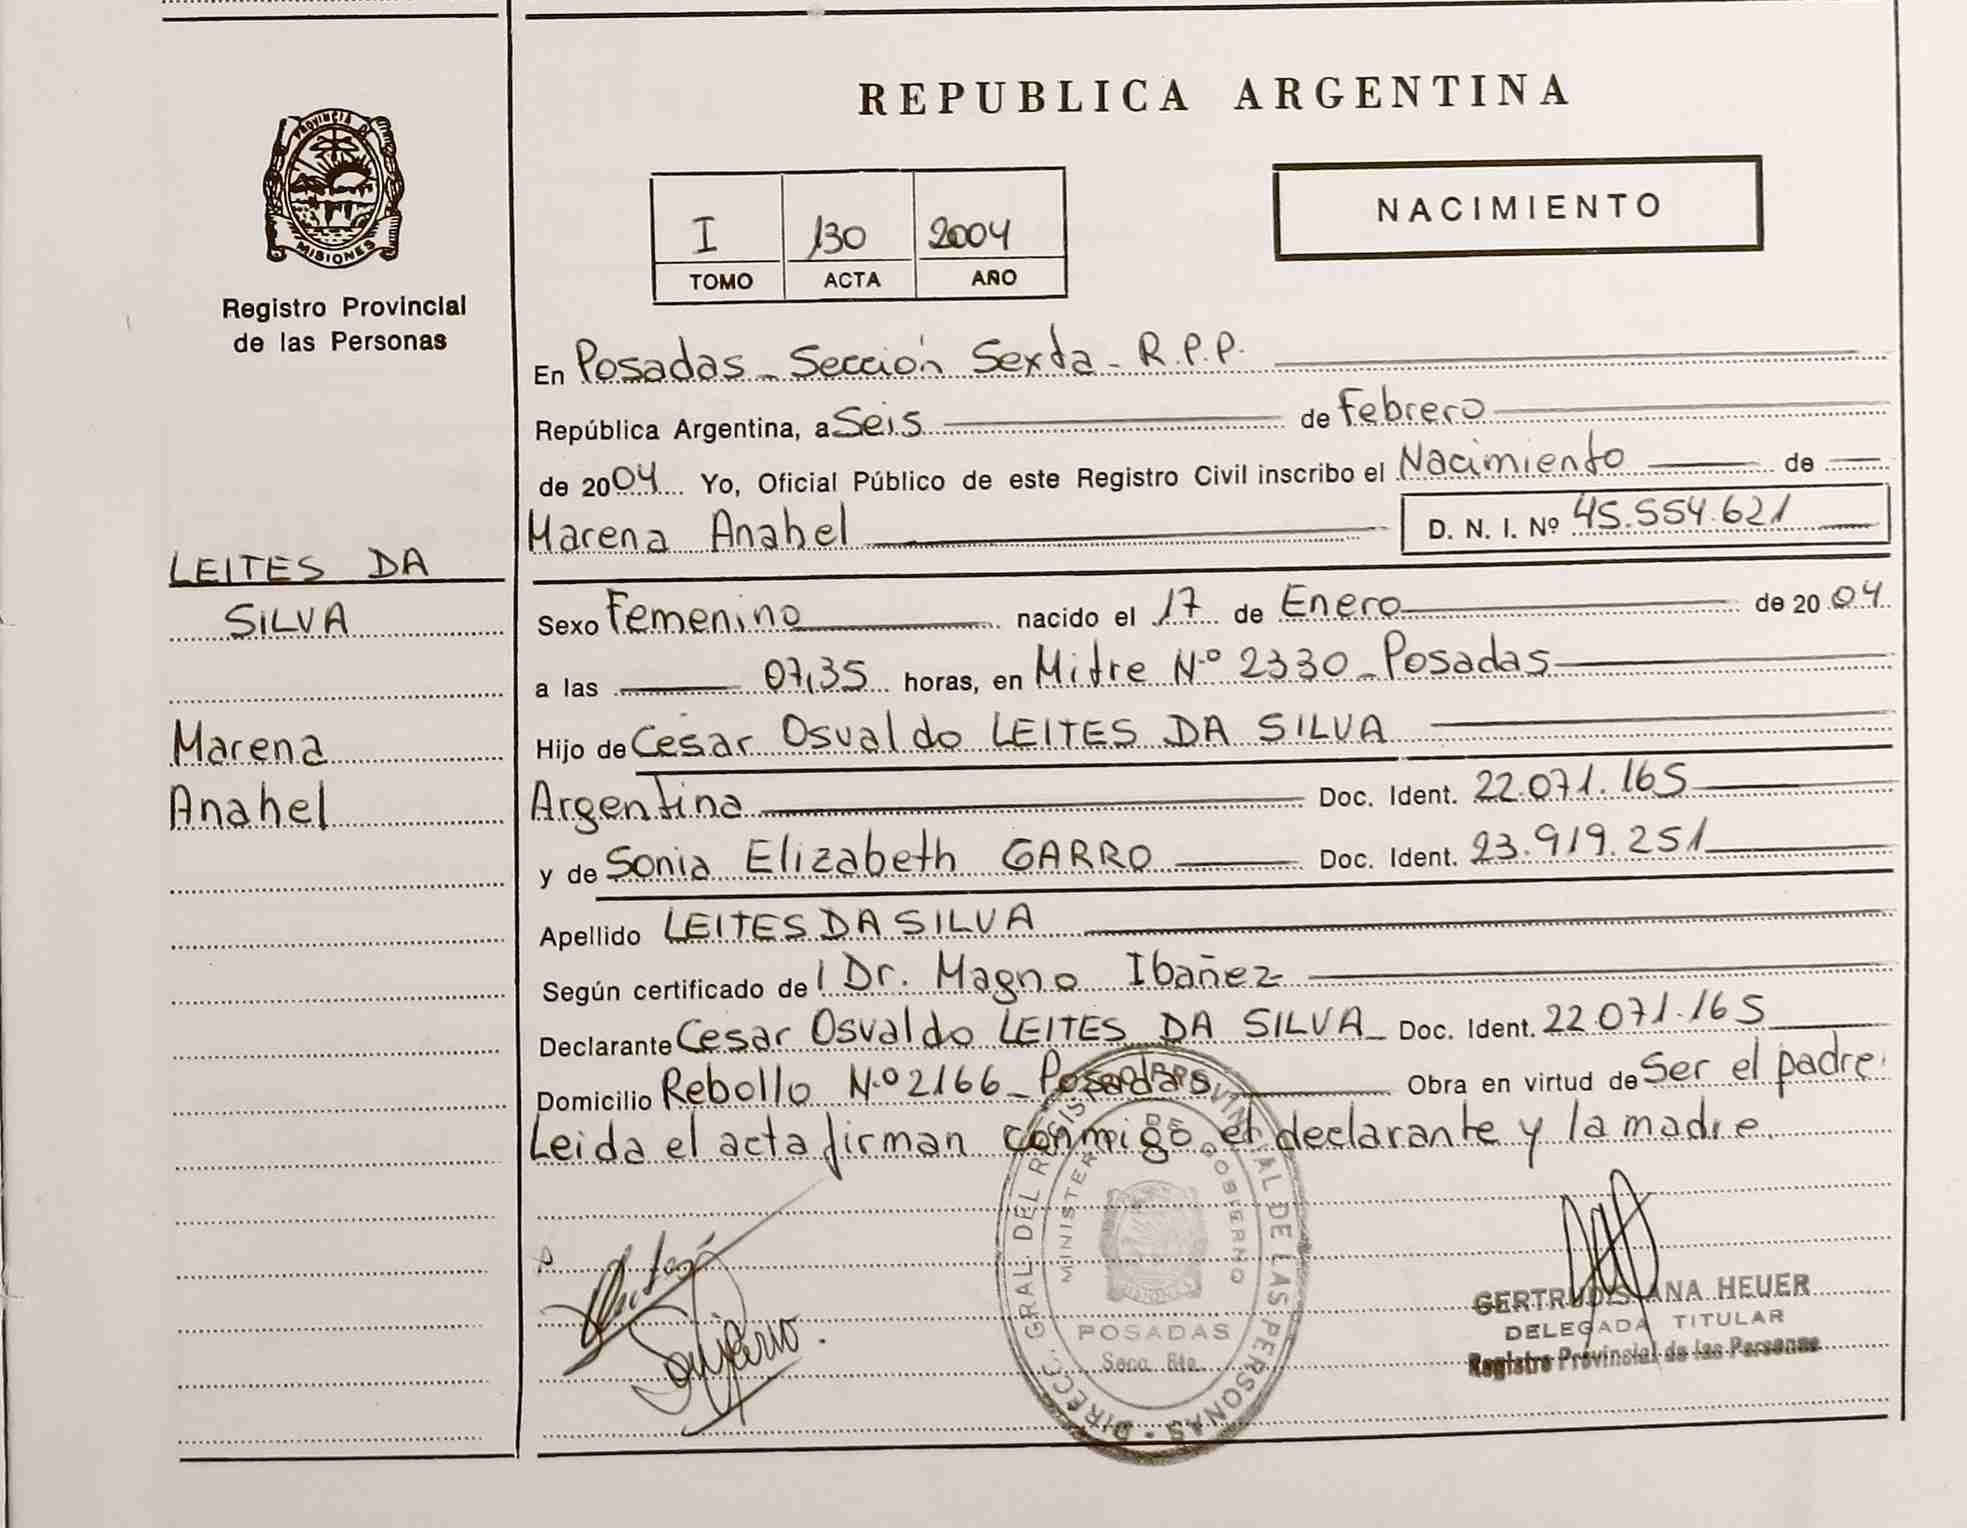 PROVINCIA DE
MISIONES
Registro Provincial
de las Personas
LEITES DA
SILVA
Marena
Anahel
REPUBLICA ARGENTINA
I 130 2004
TOMO ACTA AÑO
NACIMIENTO
En Posadas - Sección Sexta - R.P.P.
República Argentina, a Seis de Febrero
de 2004 Yo, Oficial Público de este Registro Civil inscribo el Nacimiento de
Marena Anahel D. N. I. Nº 45.554.621
Sexo Femenino nacido el 17 de Enero de 2004
a las 07,35 horas, en Mitre Nº 2330 - Posadas
Hijo de Cesar Osvaldo LEITES DA SILVA
Argentina Doc. Ident. 22.071.165
y de Sonia Elizabeth GARRO Doc. Ident. 23.919.251
Apellido LEITES DA SILVA
Según certificado de l Dr. Magno Ibañez
Declarante Cesar Osvaldo LEITES DA SILVA Doc. Ident. 22.071.165
Domicilio Rebollo Nº 2166 - Posadas Obra en virtud de Ser el padre.
Leida el acta firman conmigo el declarante y la madre.
DIRECC. GRAL. DEL REGISTRO PROVINCIAL DE LAS PERSONAS
MINISTERIO DE GOBIERNO
POSADAS
GERTRUDIS ANA HEUER
DELEGADA TITULAR
Registro Provincial de las Personas